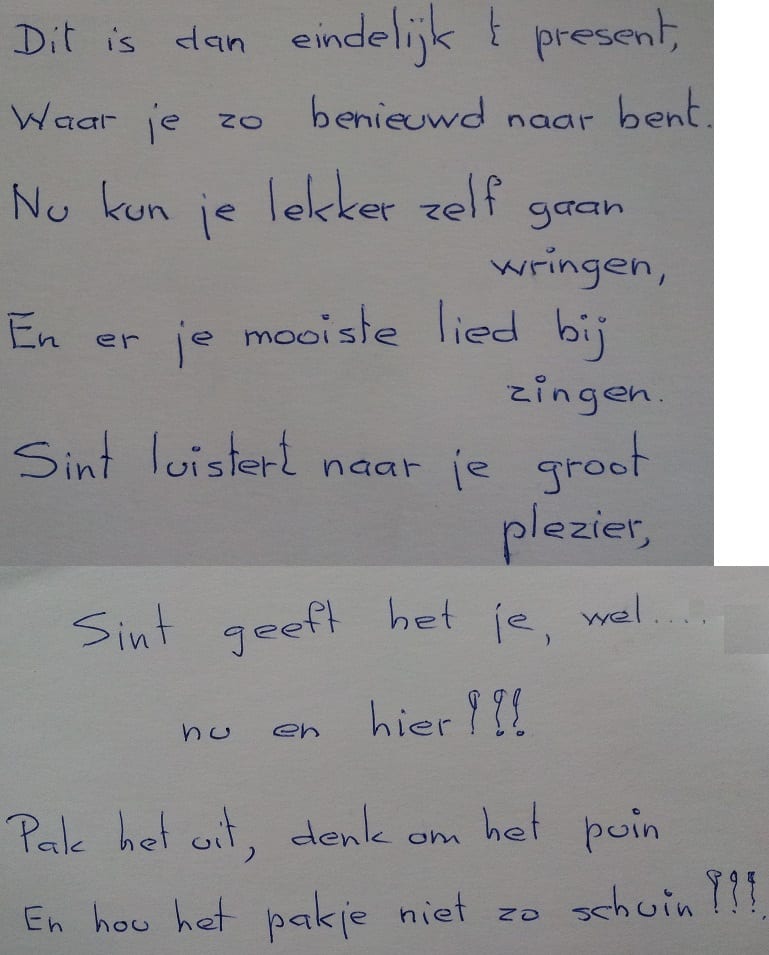 Dit is dan eindelijk 't present,
Waar je zo benieuwd naar bent.
Nu kun je lekker zelf gaan
wringen,
En er je mooiste lied bij
zingen.
Sint luistert naar je groot
plezier,
Sint geeft het je, wel....
nu en hier!!!
Pak het uit, denk om het puin
En hou het pakje niet zo schuin!!!.